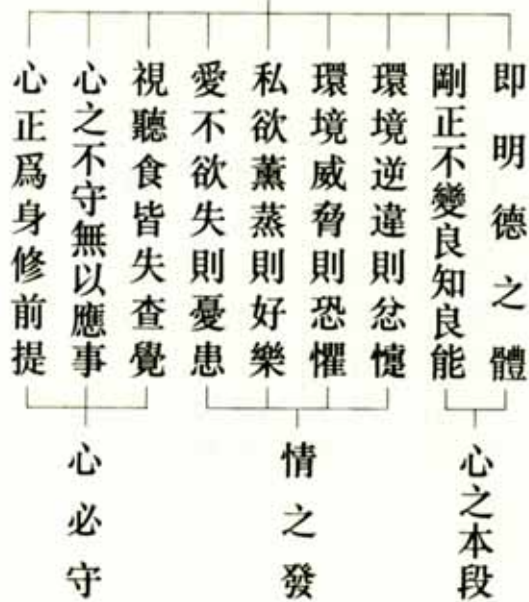 即明德之體
剛正不變良知良能
環境逆違則忿懥
環境威脅則恐懼
私欲薰蒸則好樂
愛不欲失則憂患
視聽食皆失查覺
心之不守無以應事
心正爲身修前提
心之本段
情之發
心必守